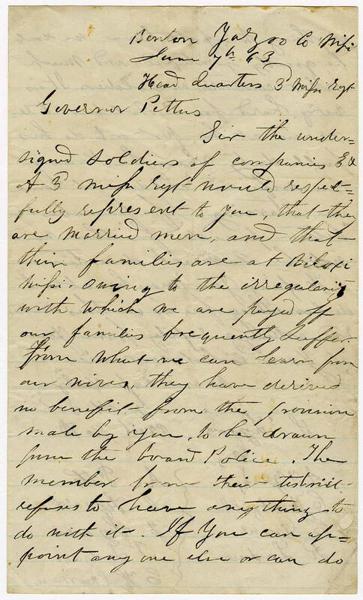 Benton Yazoo Co Missi
June 7th 63
Head Quarters 3d Missi Regt
Governor Pettus
Sir the under-
signed soldiers of companies E &
A 3d Missi Regt would respect-
fully represent to you, that they
are married men, and that
their families are at Biloxi
Missi. owing to the irregularity
with which we are payed off
our families frequently suffer
From what we can learn from
our wives, they have derived
no benefit from the provision
made by you, to be drawn
from the board Police. The
member from their district
refuses to have anything to
do with it. If You can ap-
point any one else or can do